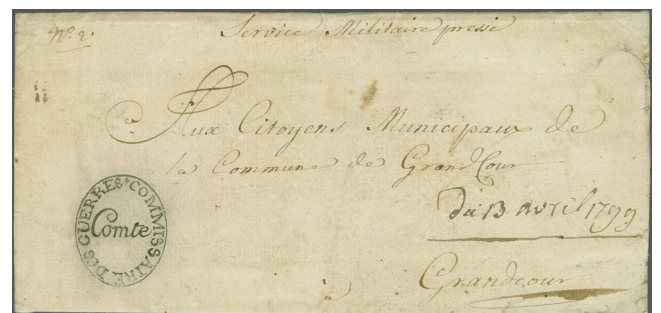 N.º 2.
Service Militaire pressé
Aux Citoyens Municipaux de
la Commune de GrandCour
du 13 avril 1799
COMMISSAIRE DES GUERRES
Comte
à
Grandcour